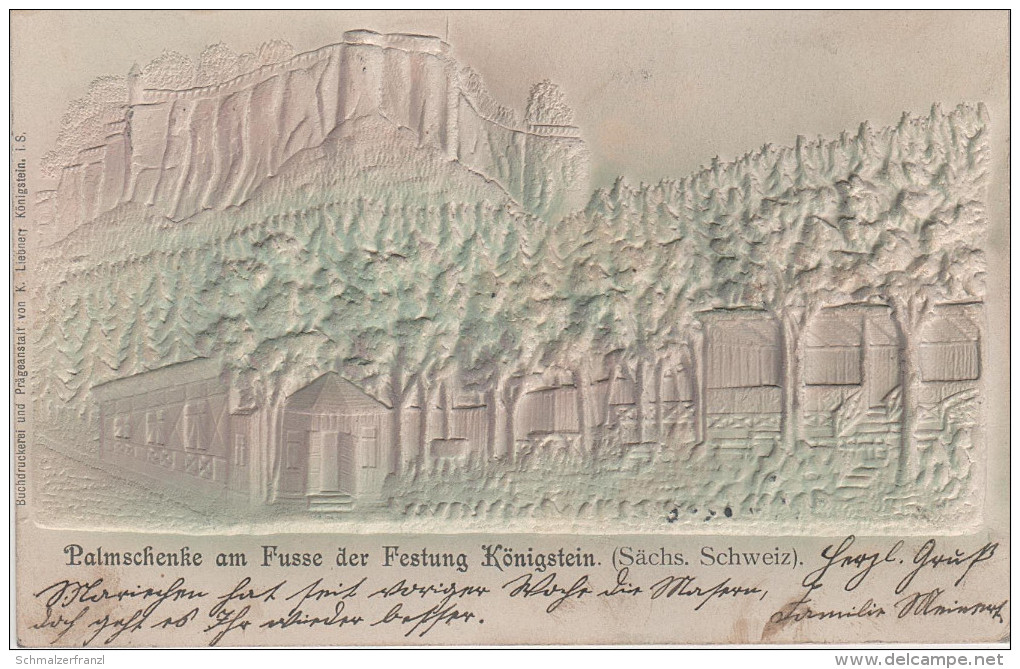 Buchdruckerei und Prägeanstalt von K. Liebnert Königstein. i. S.
Palmschenke am Fusse der Festung Königstein. (Sächs. Schweiz).
Herzl. Gruß
Mariechen hat seit voriger Woche die Masern,
doch geht es Ihr wieder besser.
Familie Meinert
Schmalzerfranzl
www.delcampe.net